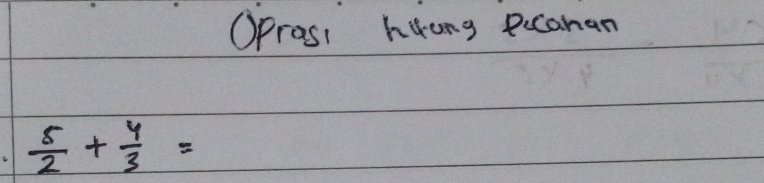 Oprasi hitung pecahan
5/2 + 4/3 =